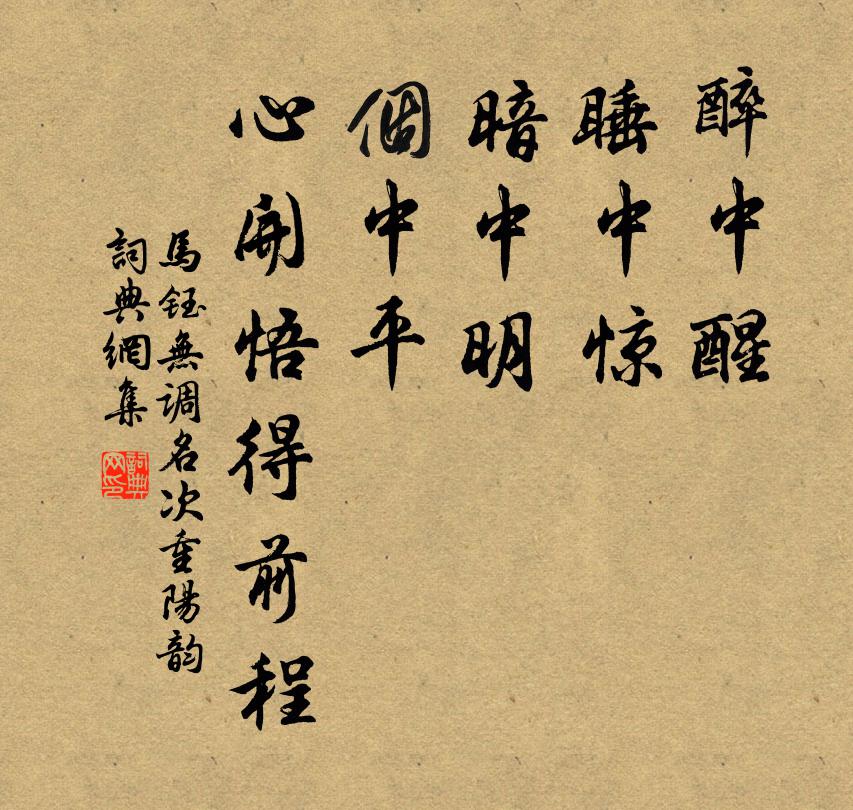 醉中醒
睡中惊
暗中明
個中平
心開悟得前程
馬鈺無調名次重陽韵
詞典網集
詞典网印